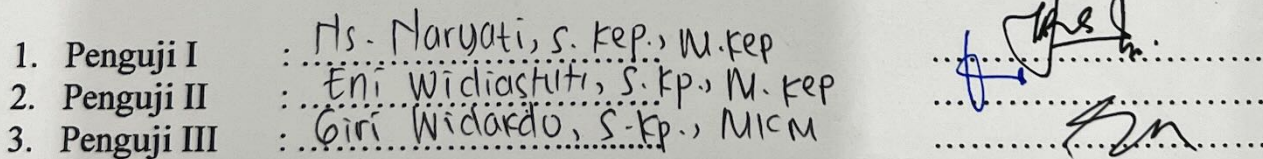 1. Penguji I : Ns. Naryati, S. Kep., M. Kep
2. Penguji II : Eni Widiastuti, S. Kp., M. Kep
3. Penguji III : Giri Widardo, S. Kp., MKM